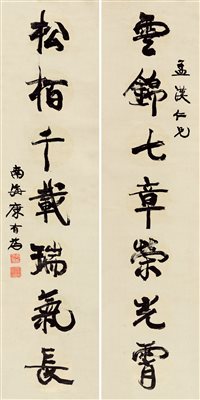 孟漢仁兄
雲錦七章榮光霄
松柏千載瑞氣長
南海康有為